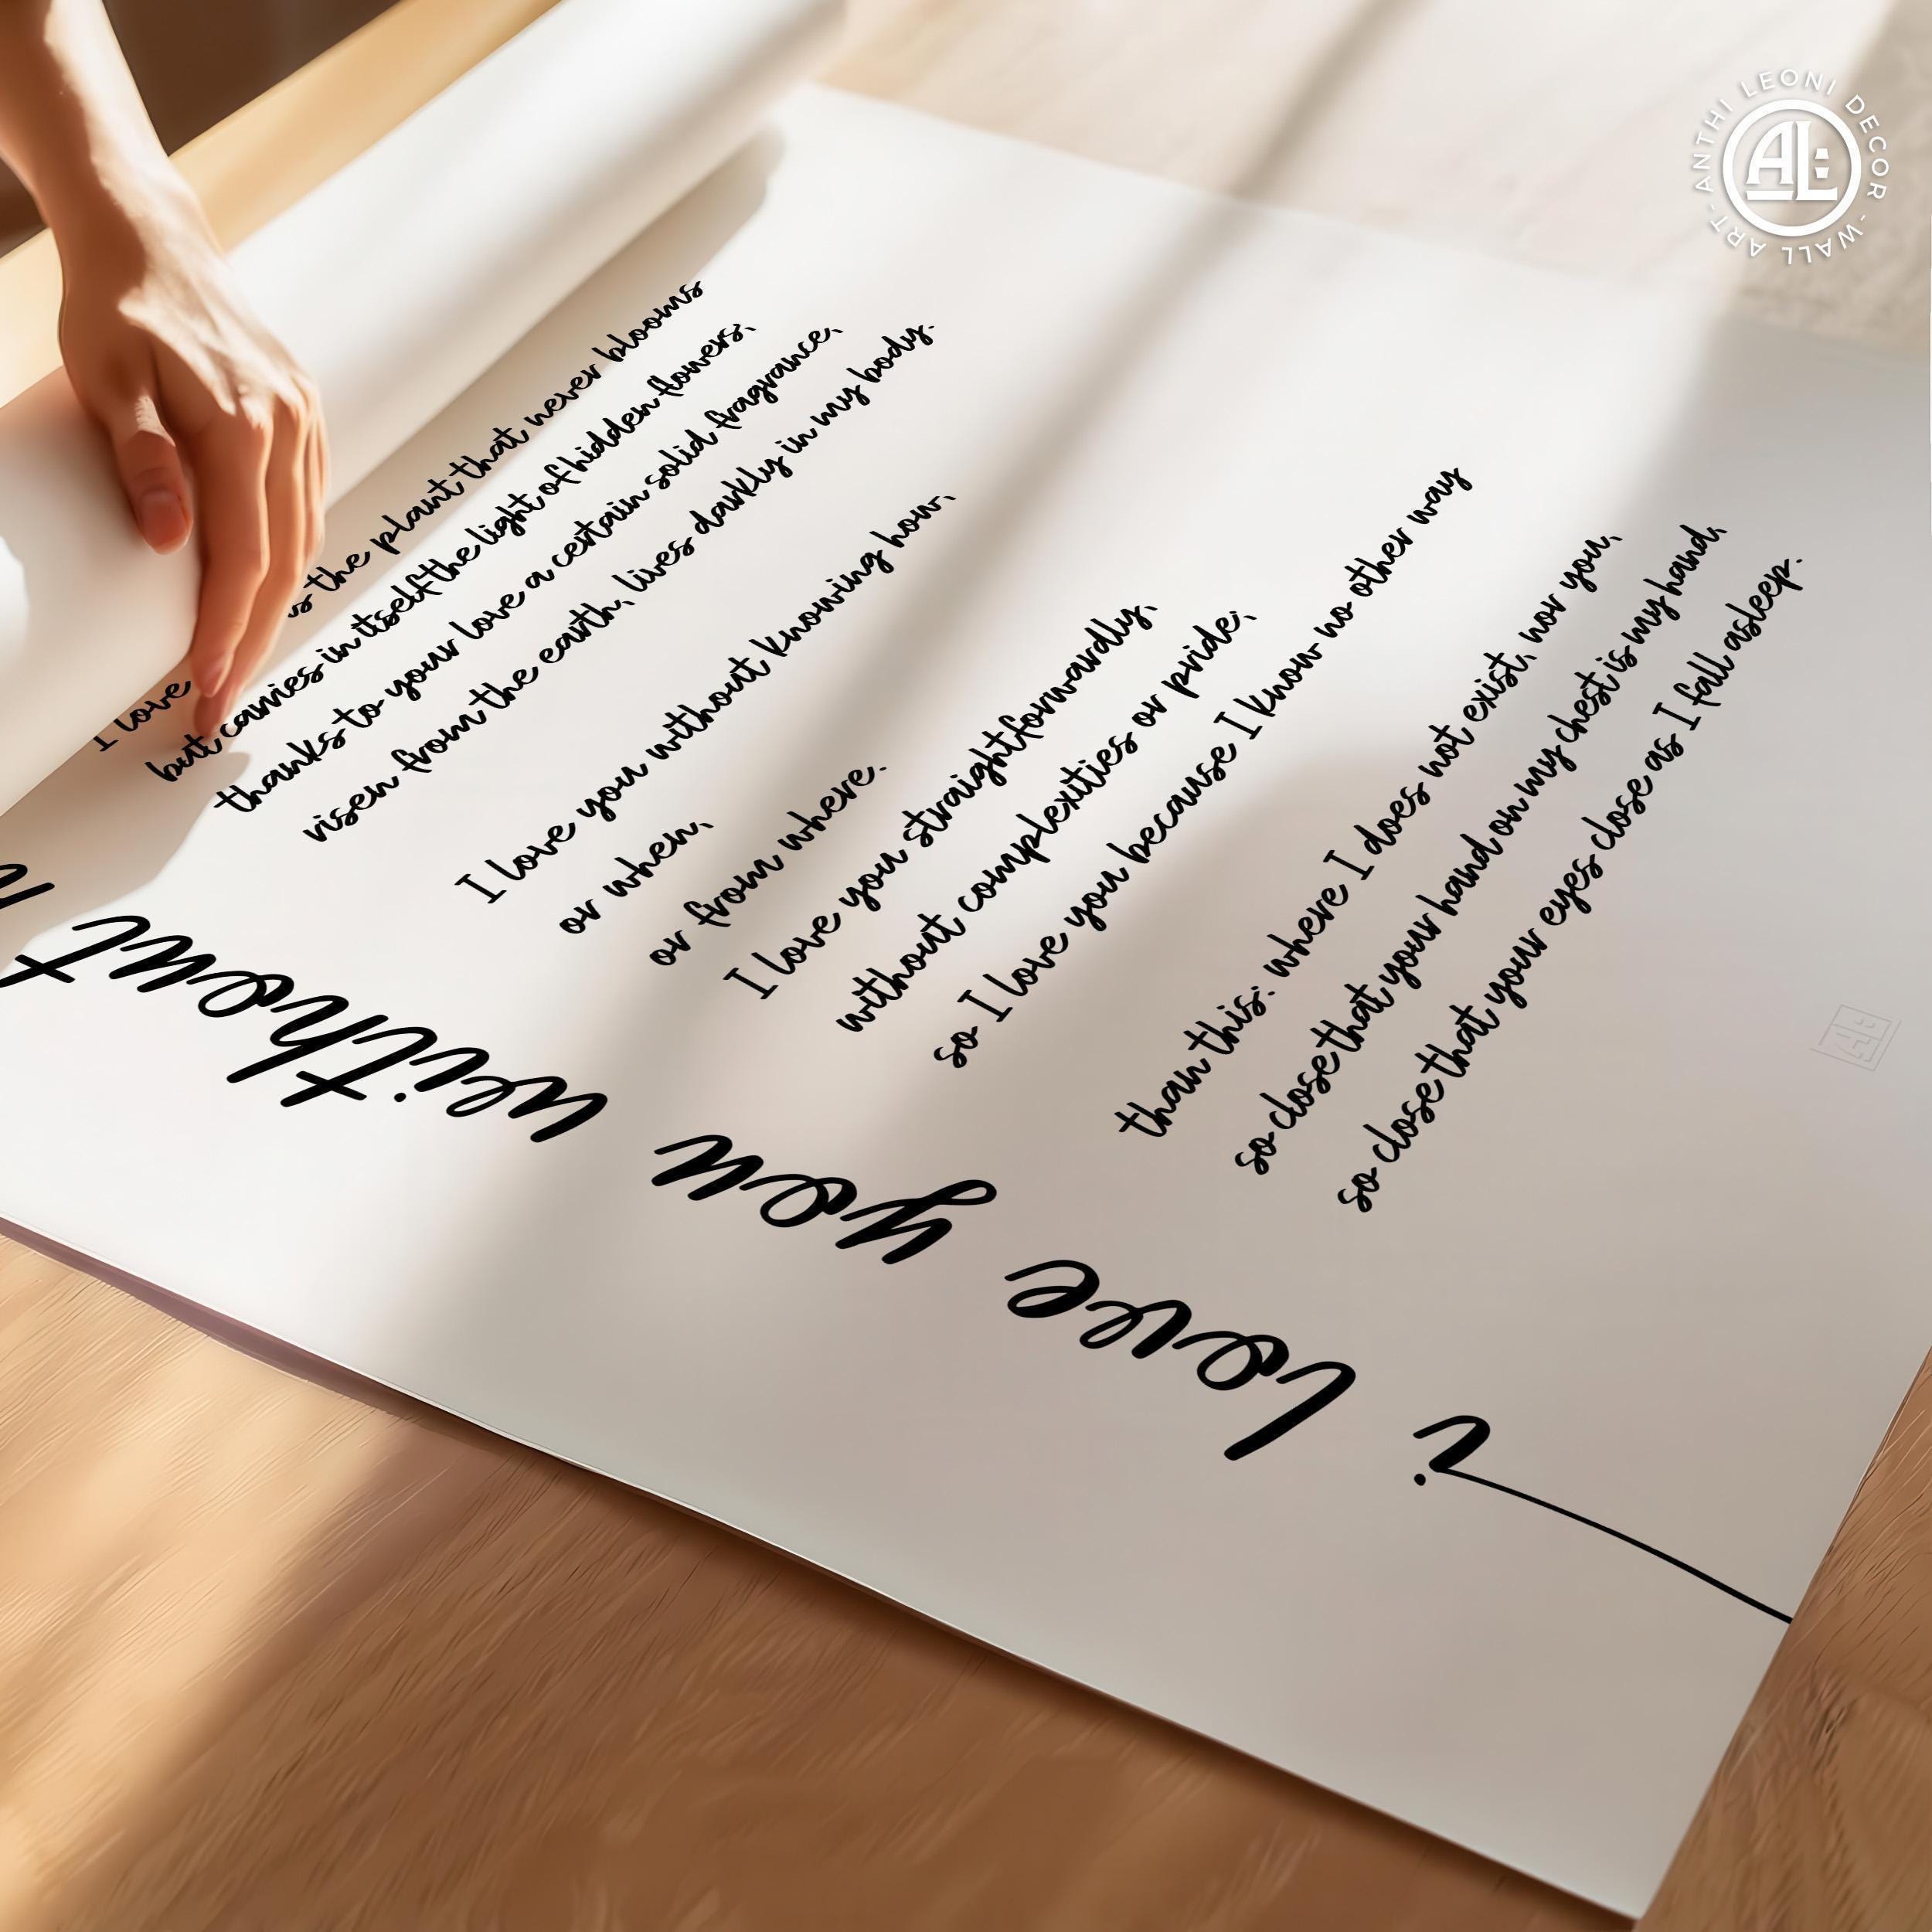 I love
s the plant that never blooms
but carries in itself the light of hidden flowers,
thanks to your love a certain solid fragrance,
risen from the earth, lives darkly in my body.
I love you without knowing how,
or when,
or from where.
I love you straightforwardly,
without complexities or pride;
so I love you because I know no other way
than this: where I does not exist, nor you,
so close that your hand on my chest is my hand,
so close that your eyes close as I fall asleep.
i love you without
ANTHI LEONI DECOR - WALL ART -
AL